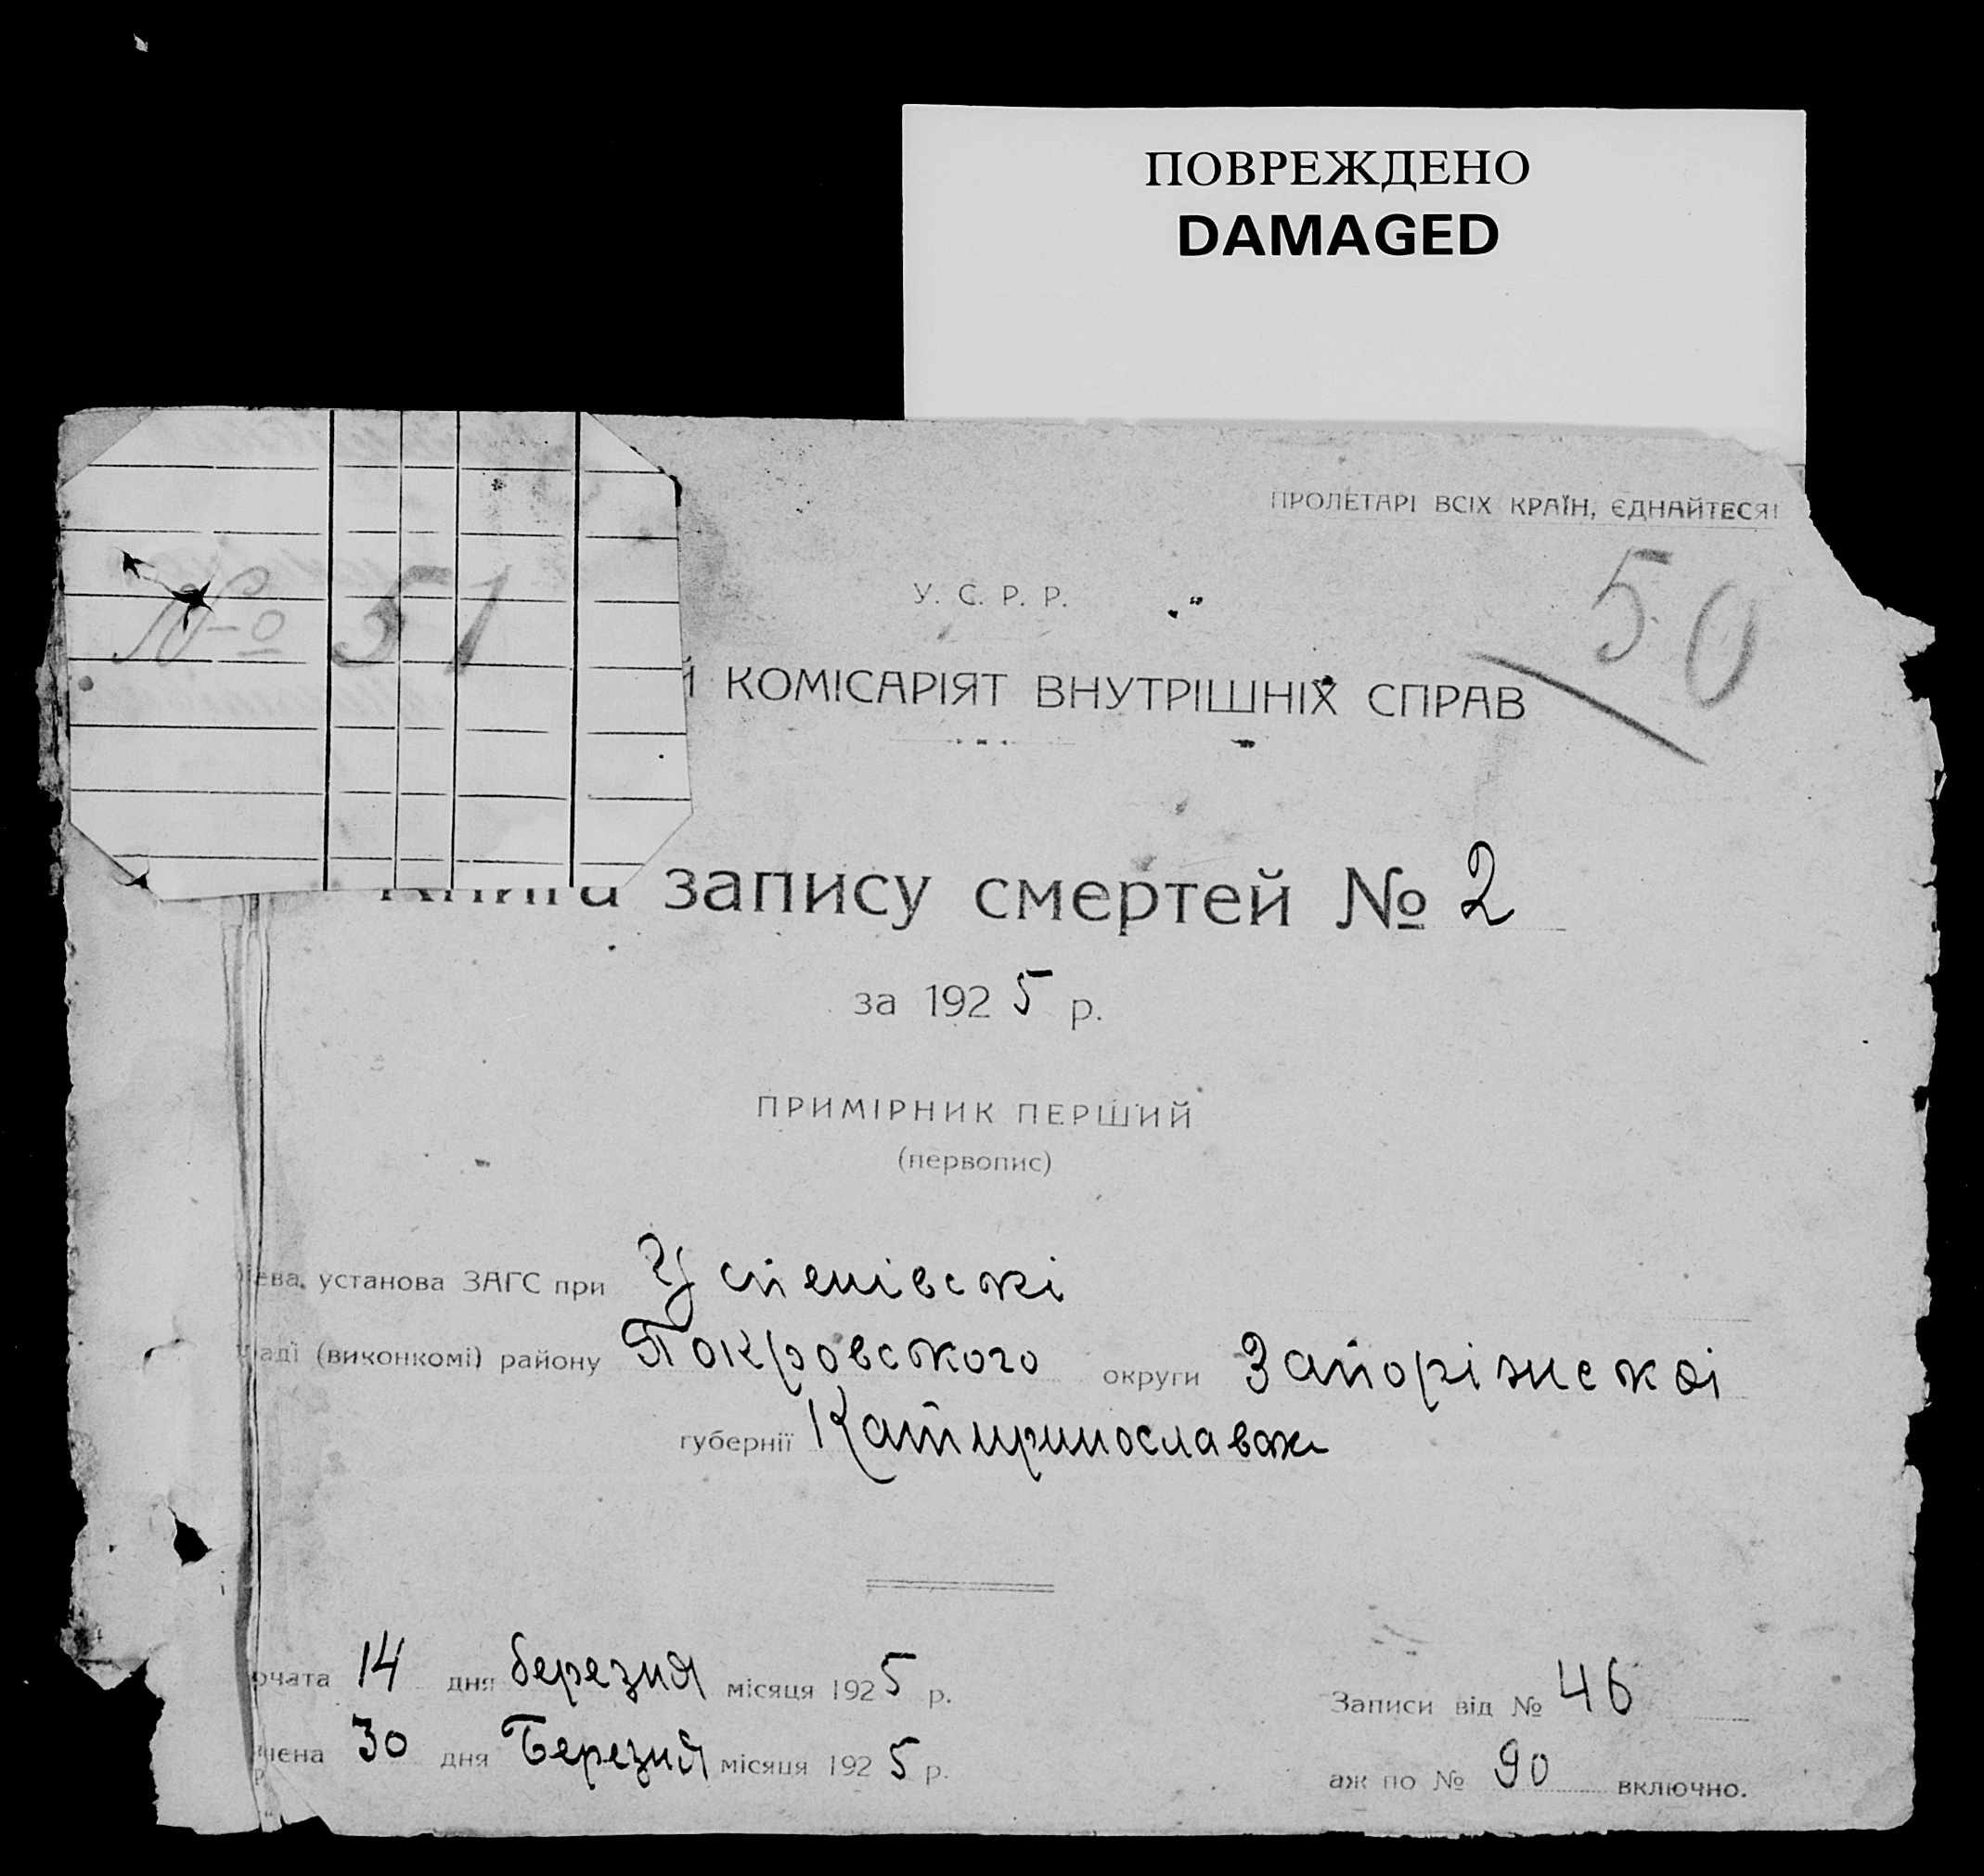 ПОВРЕЖДЕНО
DAMAGED
ПРОЛЕТАРІ ВСІХ КРАЇН, ЄДНАЙТЕСЯ!
50
№ 51
У. С. Р. Р.
Й КОМІСАРІЯТ ВНУТРІШНІХ СПРАВ
Книга запису смертей № 2
за 1925 р.
ПРИМІРНИК ПЕРШИЙ
(первопис)
установа ЗАГС при Успенівські
раді (виконкомі) району Покровського округи Запоріжскоі
губернії Катиринославск
очата 14 дня березня місяця 1925 р.
чена 30 дня Березня місяця 1925 р.
Записи від № 46
аж по № 90 включно.